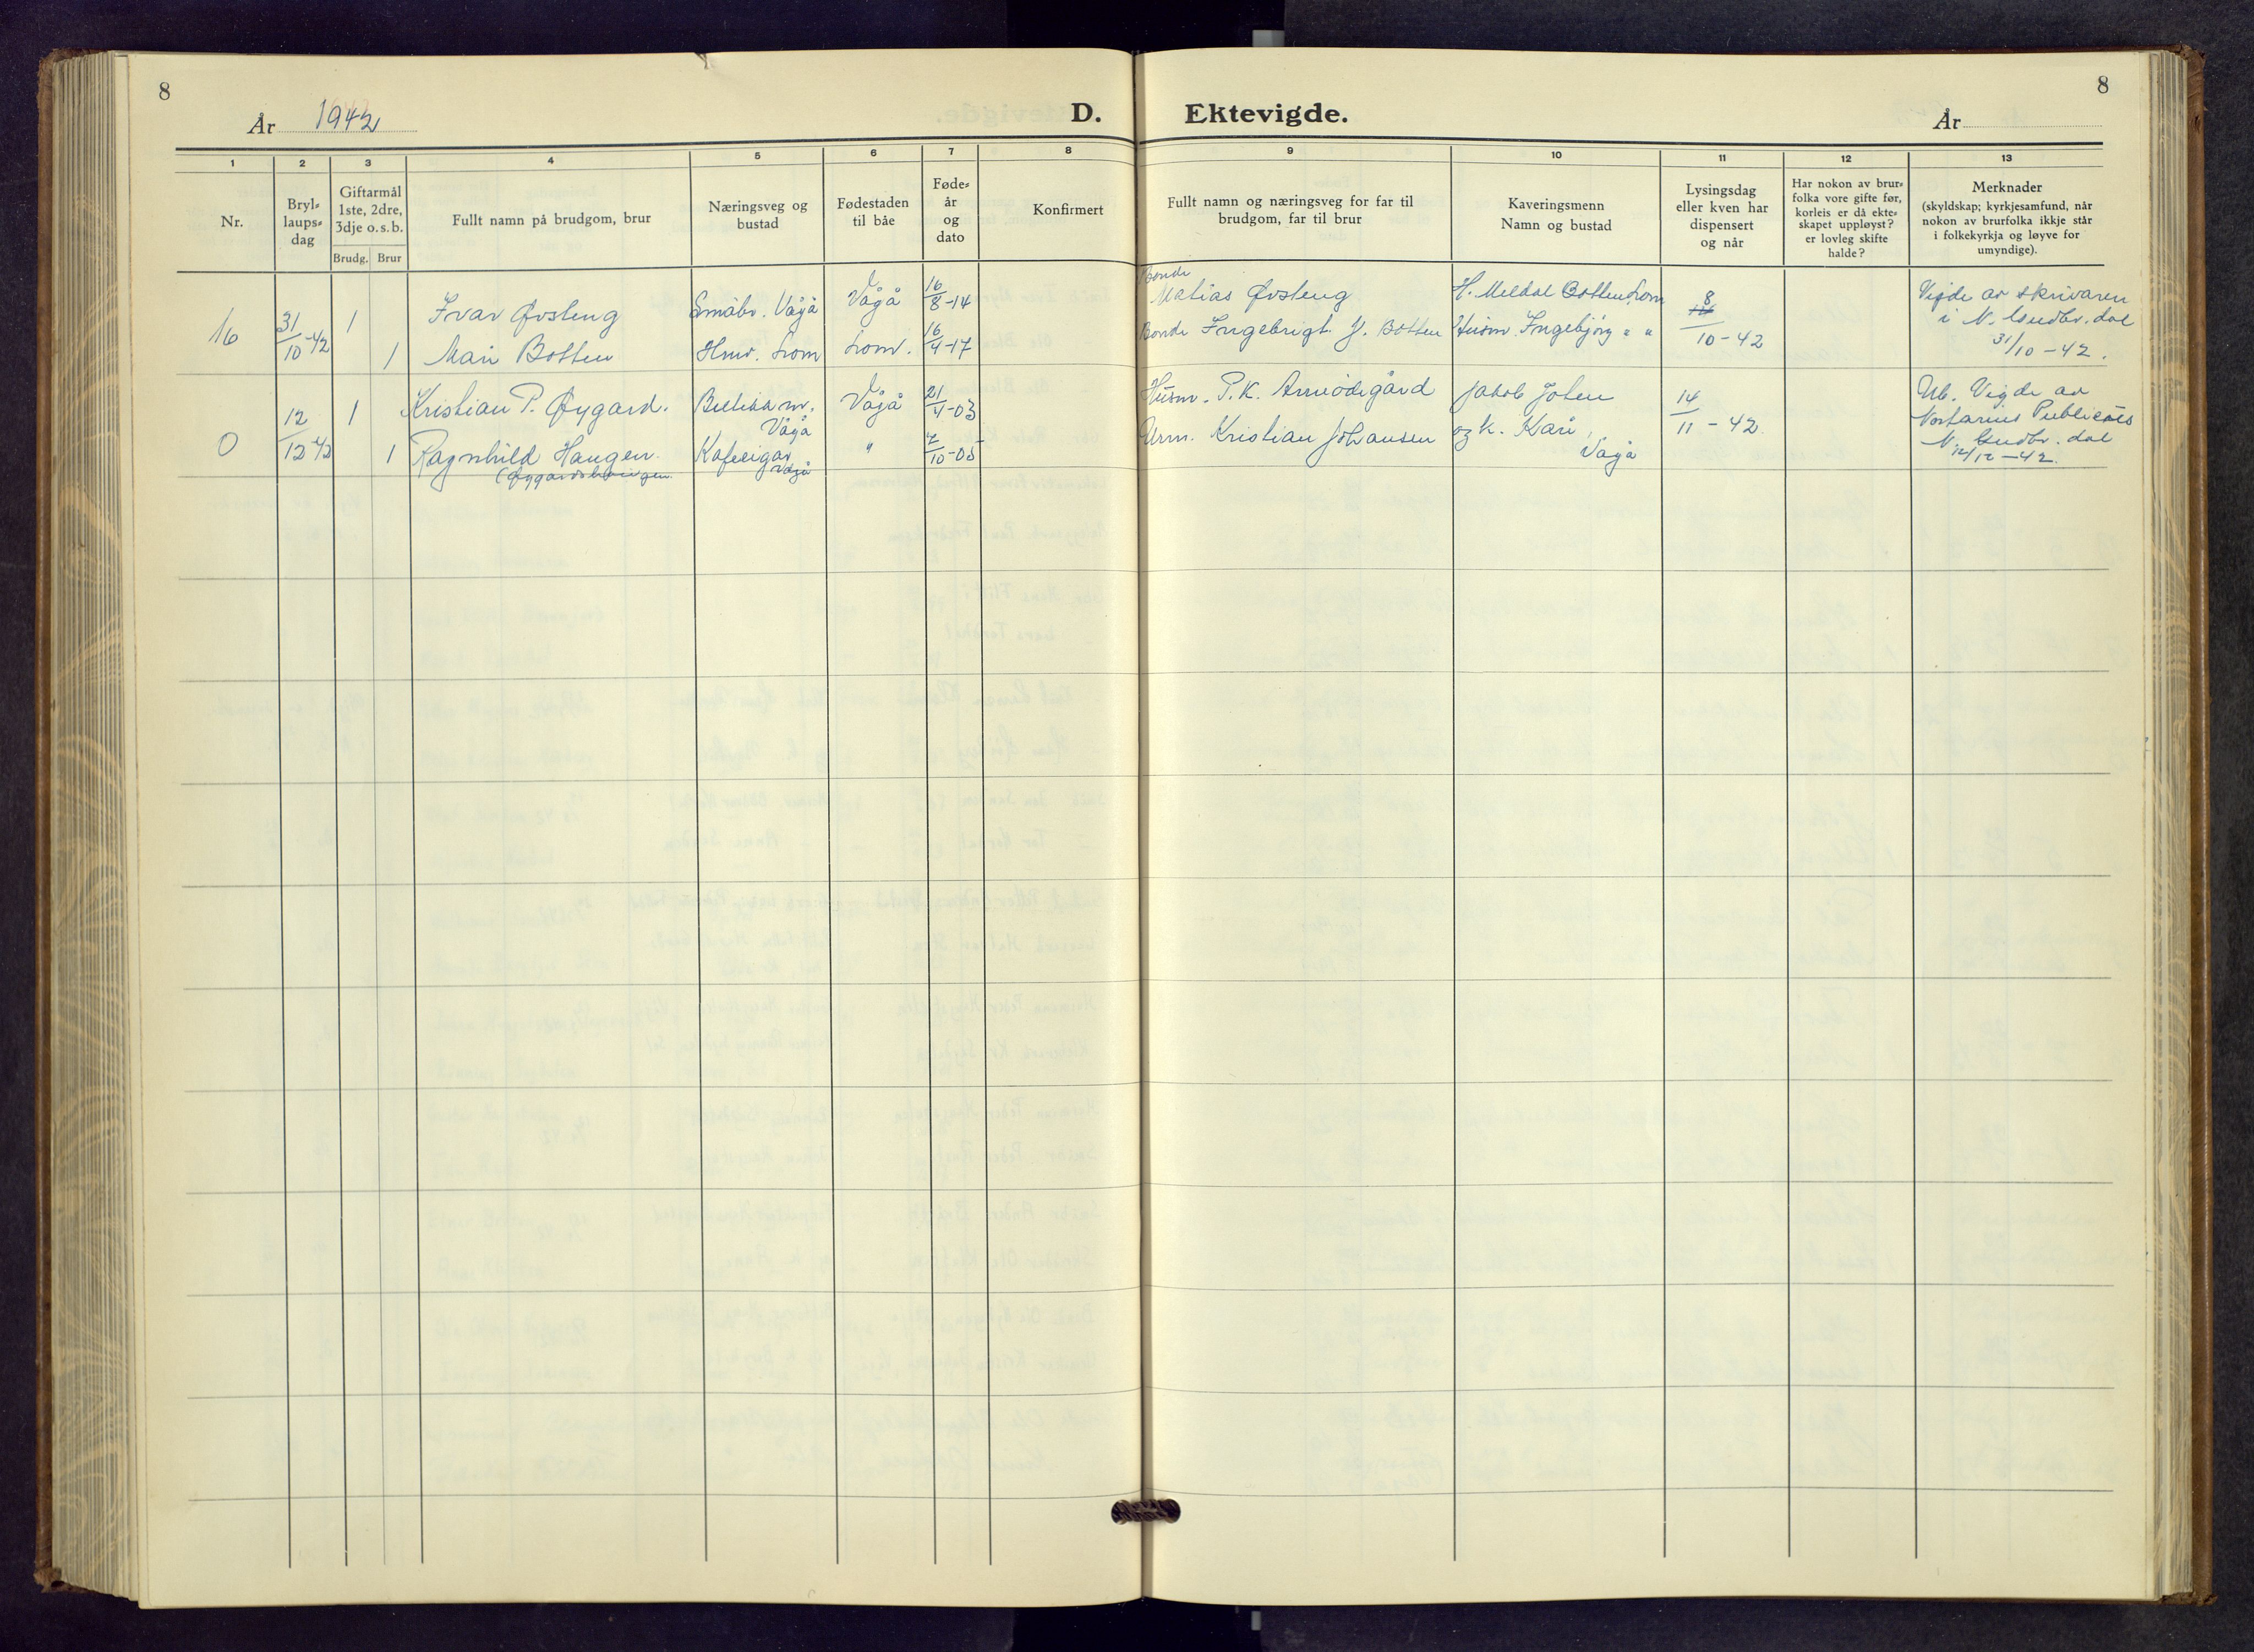 8
År 1942
D.
Ektevigde.
År
8
1 2 3 4 5 6 7 8 9 10 11 12 13
Nr.
Bryl-
laups-
dag
Giftarmål
1ste, 2dre,
3dje o.s.b.
Brudg. Brur
Fullt namn på brudgom, brur
Næringsveg og
bustad
Fødestaden
til båe
Føde-
år
og
dato
Konfirmert
Fullt namn og næringsveg for far til
brudgom, far til brur
Kaveringsmenn
Namn og bustad
Lysingsdag
eller kven har
dispensert
og når
Har nokon av brur-
folka vore gifte før,
korleis er då ekte-
skapet uppløyst?
er lovleg skifte
halde?
Merknader
(skyldskap; kyrkjesamfund, når
nokon av brurfolka ikkje står
i folkekyrkja og løyve for
umyndige).
16
31/10-42
1 Ivar Øvsteng Småbr. Vågå Vågå 16/8-14
1 Mari Botten Lom Lom. 16/4-17
Bonde
Matias Øvsteng
Bonde Ingebrigt J. Botten
H. Meldal Botten, Lom
Husm. Ingebjörg " "
8
10-42
Vigde av skrivaren
i N. Gudbr. dal
31/10-42.
0
12/12 42
1 Kristian P. Øygard.
Vågå
Vågå 21/4-03
1 Ragnhild Haugen.
(Øygardshaugen
Kafeeigar
Vågå
"
Husm. P.K.
Arm. Kristian Johansen
Jakob
og k. Kari,
Vågå
14
11-42.
Ub. Vigde av
Notarius Publicus
N. Gudbr. dal
12/12-42.